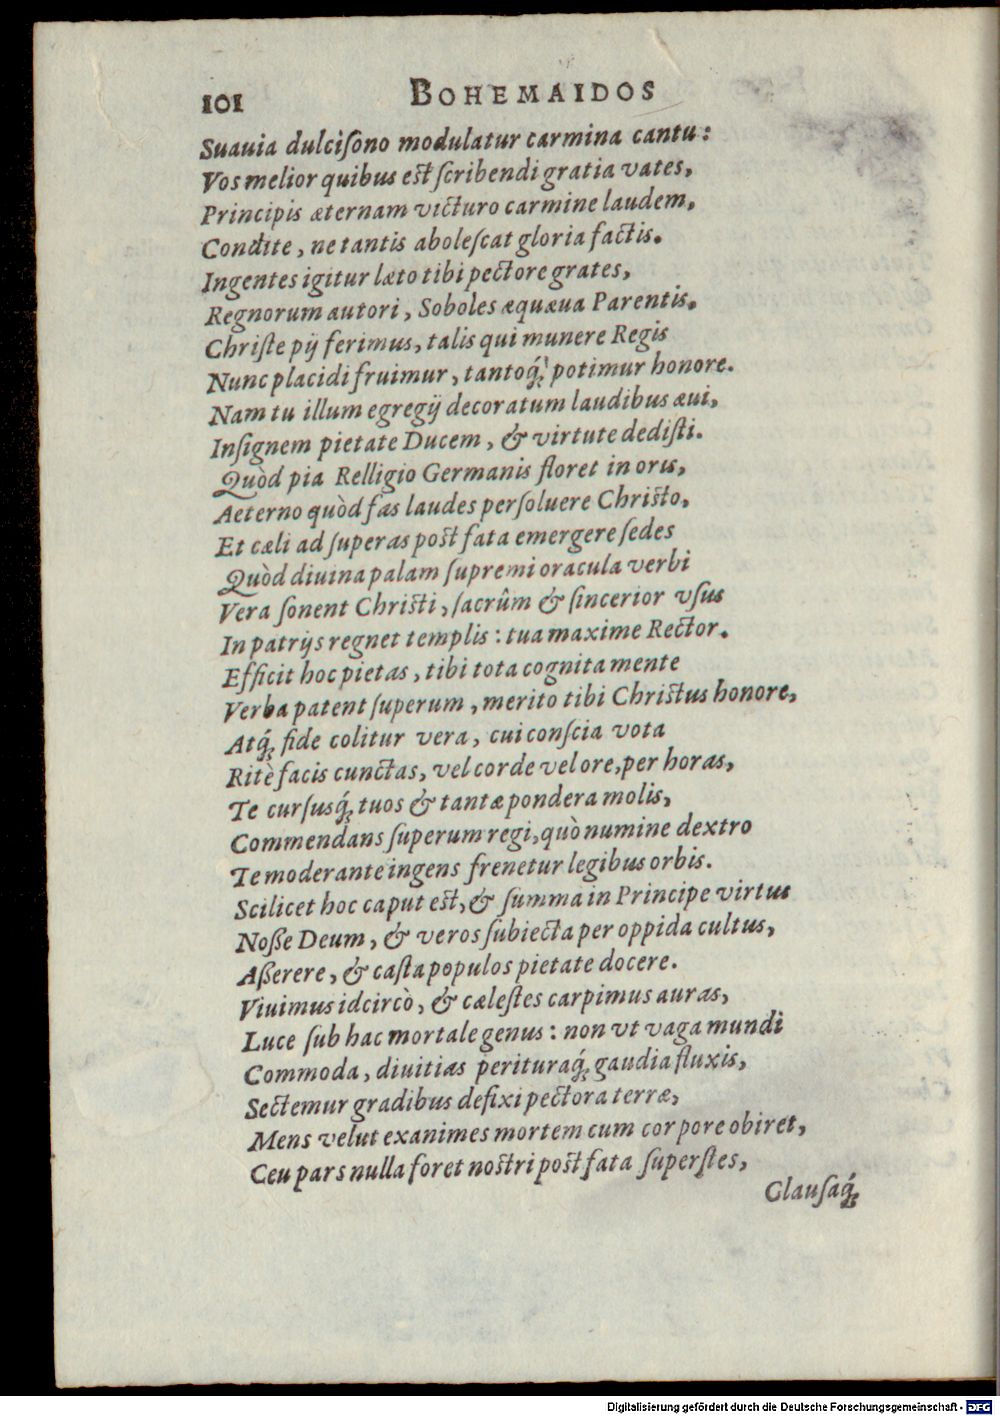 101 BOHEMAIDOS
Suauia dulciſono modulatur carmina cantu:
Vos melior quibus est ſcribendi gratia vates,
Principis æternam victuro carmine laudem,
Condite, ne tantis aboleſcat gloria factis.
Ingentes igitur læto tibi pectore grates,
Regnorum autori, Soboles æquæua Parentis.
Chriſte pij ferimus, talis qui munere Regis
Nunc placidi fruimur, tantoq́; potimur honore.
Nam tu illum egregij decoratum laudibus æui,
Inſignem pietate Ducem, & virtute dediſti.
Quòd pia Relligio Germanis floret in oris,
Aeterno quòd fas laudes perſoluere Christo,
Et cæli ad ſuperas post fata emergere ſedes
Quòd diuina palam ſupremi oracula verbi
Vera ſonent Christi, ſacrûm & ſincerior vſus
In patrijs regnet templis: tua maxime Rector.
Efficit hoc pietas, tibi tota cognita mente
Verba patent ſuperum, merito tibi Christus honore,
Atq́; fide colitur vera, cui conſcia vota
Ritè facis cunctas, vel corde vel ore, per horas,
Te curſusq́; tuos & tantæ pondera molis,
Commendans ſuperum regi, quò numine dextro
Te moderante ingens frenetur legibus orbis.
Scilicet hoc caput est, & ſumma in Principe virtus
Noße Deum, & veros ſubiecta per oppida cultus,
Aßerere, & caſta populos pietate docere.
Viuimus idcircò, & cæleſtes carpimus auras,
Luce ſub hac mortale genus: non vt vaga mundi
Commoda, diuitias perituraq́; gaudia fluxis,
Sectemur gradibus defixi pectora terræ,
Mens velut exanimes mortem cum corpore obiret,
Ceu pars nulla foret nostri post fata ſuperſtes,
Clauſaq́;
Digitalisierung gefördert durch die Deutsche Forschungsgemeinschaft - DFG